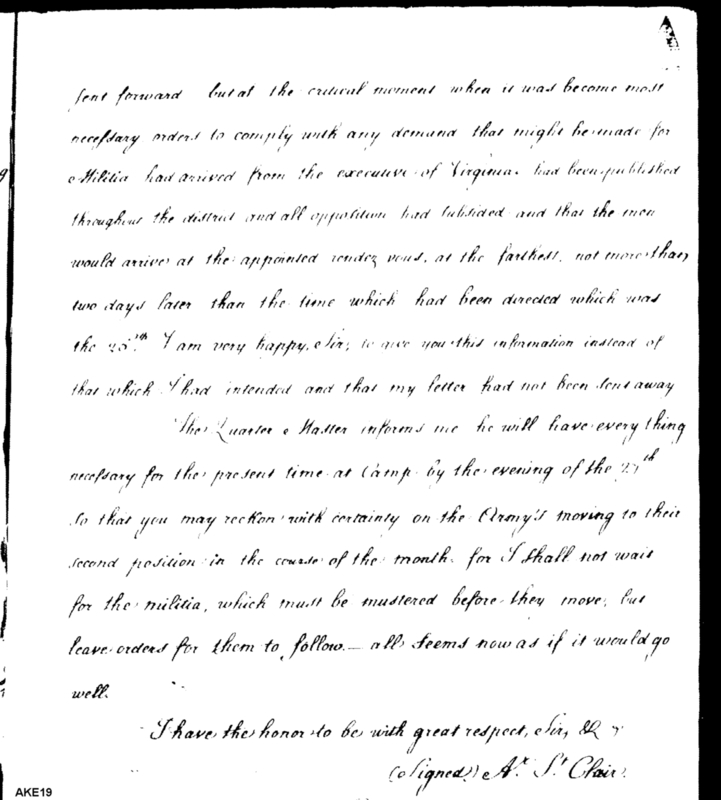 sent forward but at the critical moment when it was become most
necessary orders to comply with any demand that might be made for
Militia had arrived from the executive of Virginia had been published
throughout the district and all opposition had subsided and that the men
would arrive at the appointed rendezvous, at the farthest, not more than
two days later than the time which had been directed which was
the 25th. I am very happy, Sir, to give you this information instead of
that which I had intended and that my letter had not been sent away
The Quarter Master informs me he will have every thing
necessary for the present time at Camp by the evening of the 27th
so that you may reckon with certainty on the Army's moving to their
second position in the course of the month. for I shall not wait
for the militia, which must be mustered before they move, but
leave orders for them to follow — all seems now as if it would go
well.
I have the honor to be with great respect, Sir, &c
(Signed) Ar. St. Clair.
AKE19